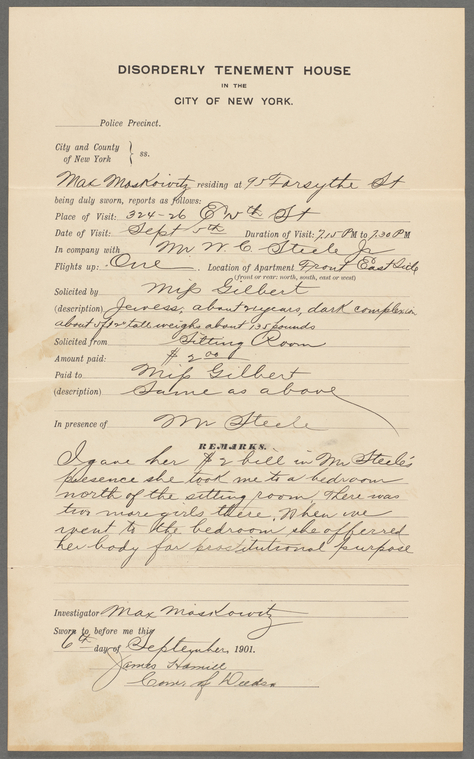 DISORDERLY TENEMENT HOUSE
IN THE
CITY OF NEW YORK.
Police Precinct.
City and County
of New York } ss.
Max Moskowitz residing at 95 Forsythe St
being duly sworn, reports as follows:
Place of Visit: 324-26 E St
Date of Visit: Sept 5th Duration of Visit: 7,15 PM to 7,30 PM
In company with Mr W. C Steele Jr
Flights up: One Location of Apartment Front East Side
(front or rear: north, south, east or west)
Solicited by Miss Gilbert
(description) Jewess, about 21 years, dark complexion
about 5ft 2" tall, weighs about 135 pounds
Solicited from Sitting Room
Amount paid: $2.00
Paid to Miss Gilbert
(description) Same as above
In presence of Mr Steele
REMARKS.
I gave her $2 bill in Mr Steele's
presence she took me to a bedroom
north of the sitting room. There was
two more girls there. When we
went to the bedroom she offerred
her body for purpose
Investigator Max Moskowitz
Sworn to before me this
6th day of September, 1901.
James Hamill
Comr of Deeds